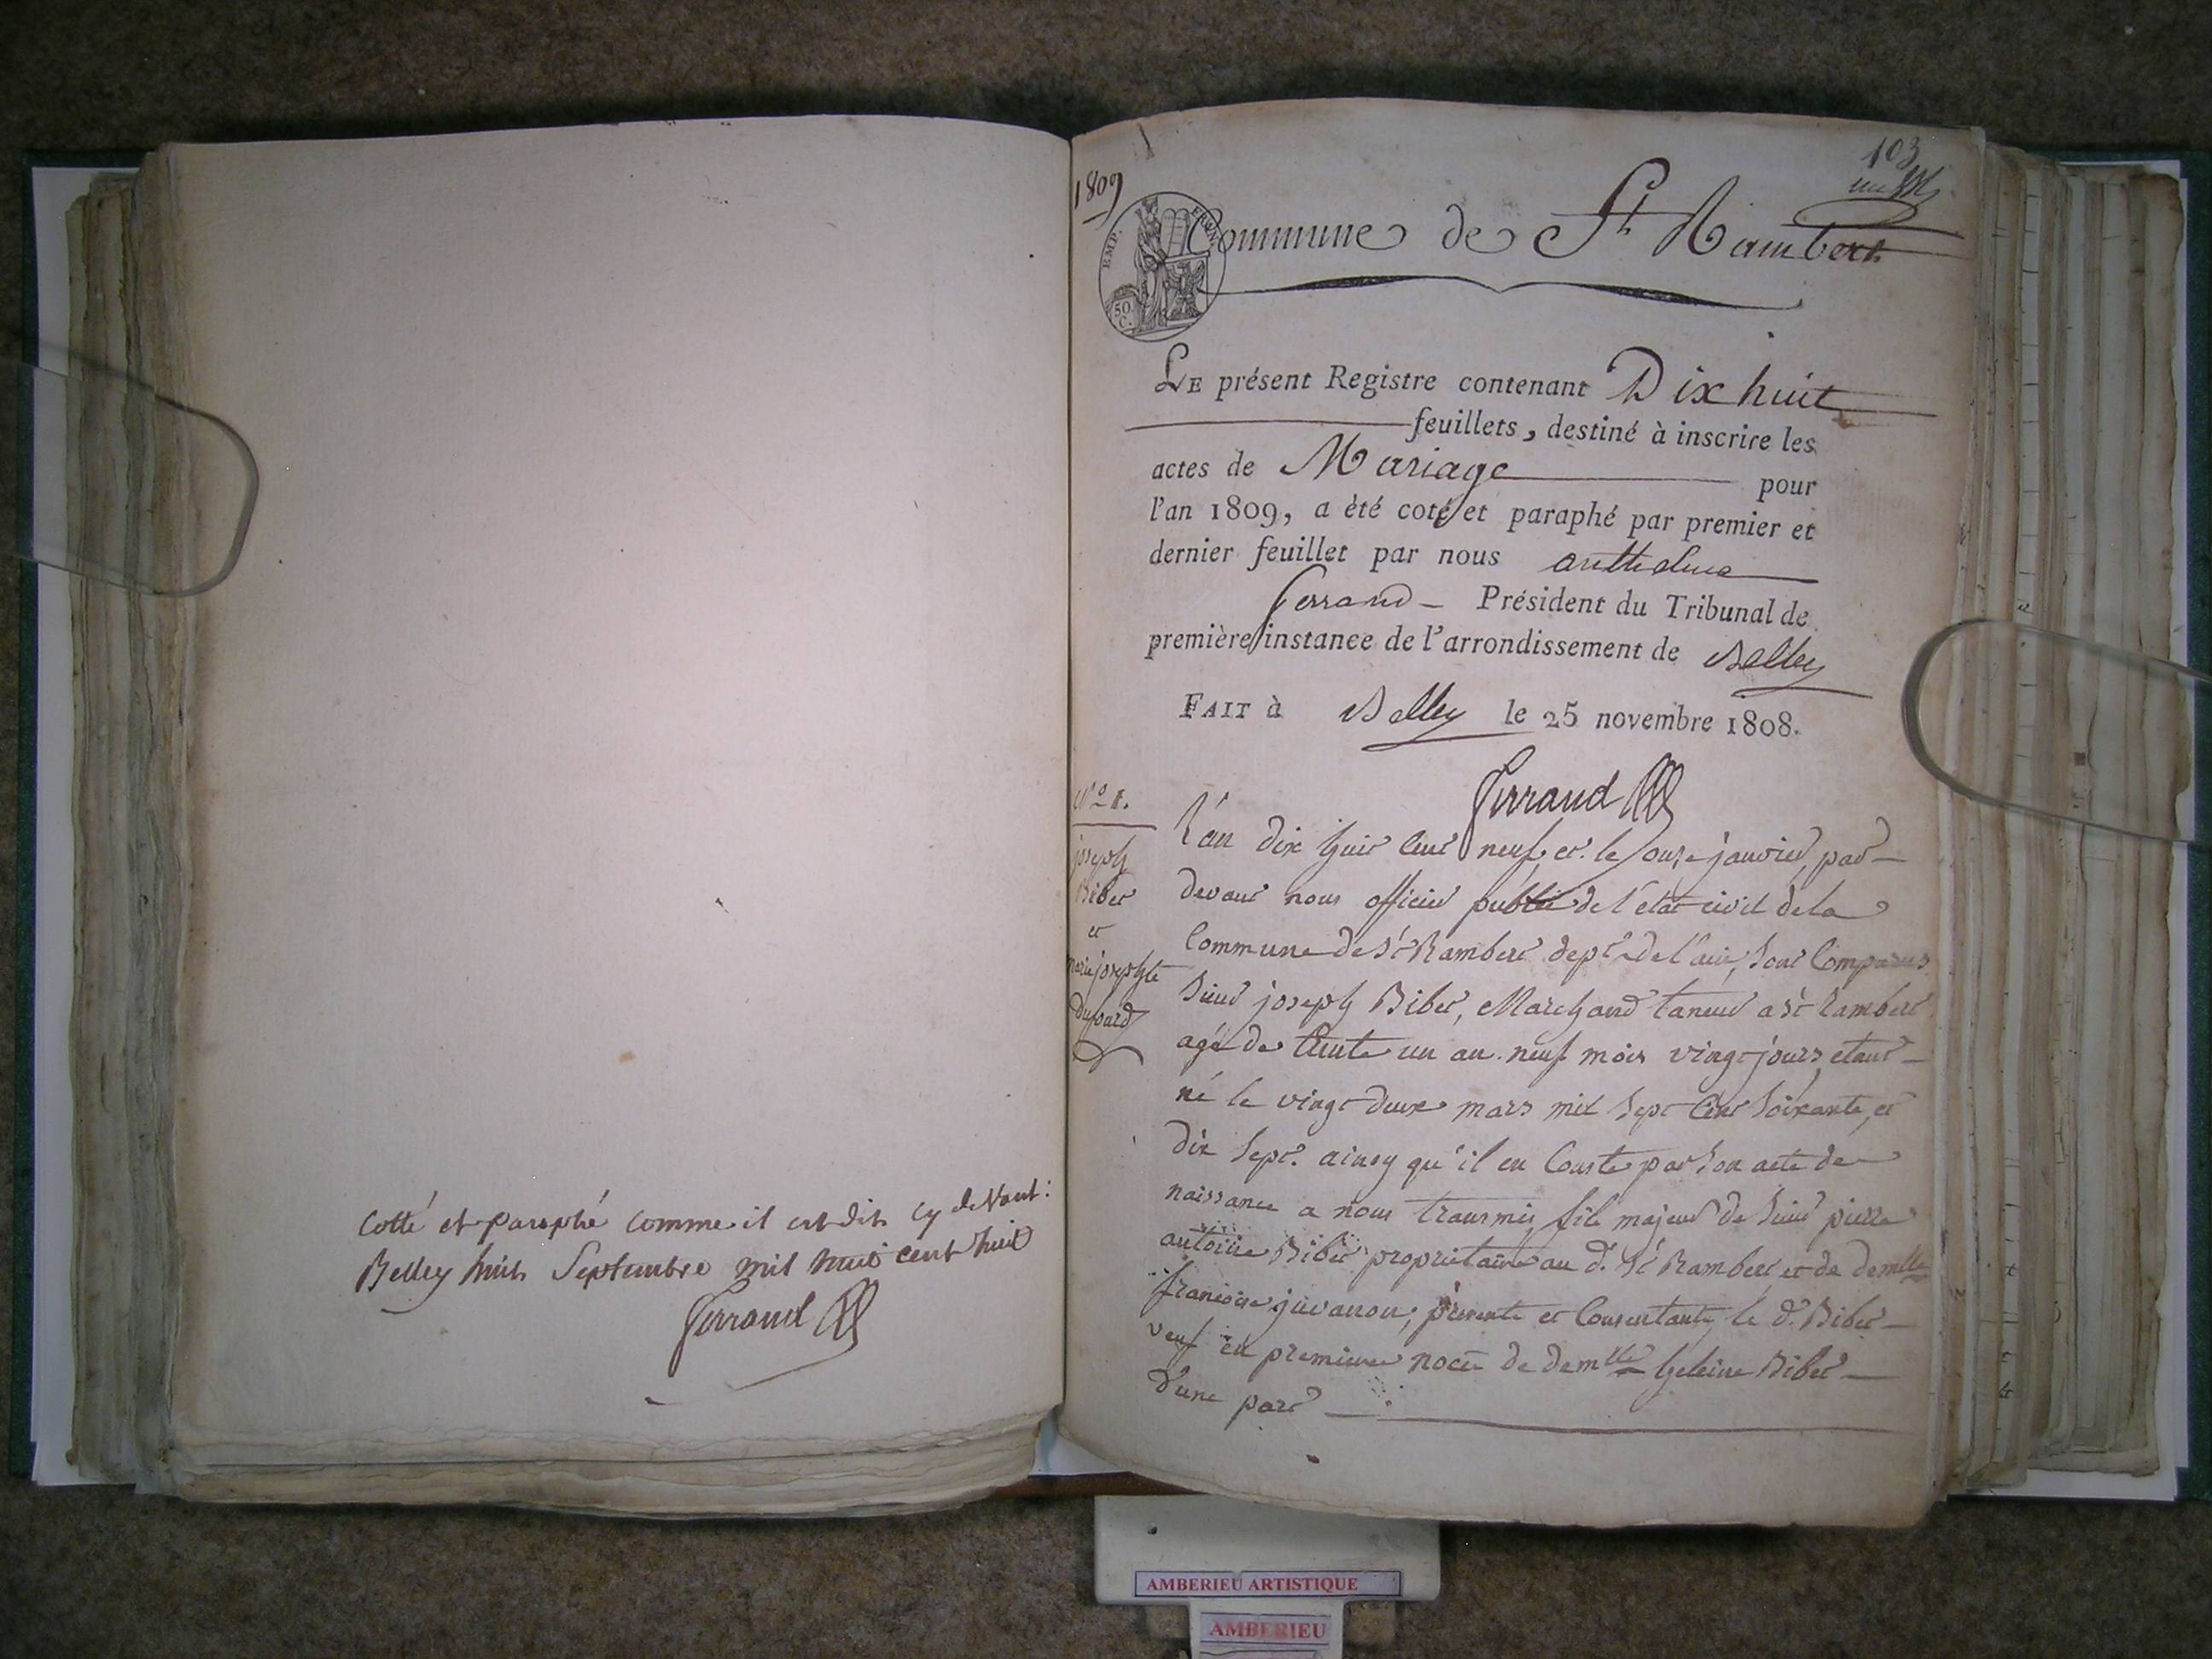 Cotté et paraphé comme il est dit cy devant:
Belley huit Septembre mil huit cent huit
Ferrand
1809
103
EMP. FRAN.
50 C.
Commune de St Rambert
LE présent Registre contenant Dix huit
feuillets, destiné à inscrire les
actes de Mariage pour
l'an 1809, a èté coté et paraphé par premier et
dernier feuillet par nous anthelme
ferrand - Président du Tribunal de
première instance de l'arrondissement de Belley
FAIT à Belley le 25 novembre 1808.
Ferrand
N° 1.
joseph
Bibet
et
marie josephte
L'an dix huit cent neuf et le onze janvier, par-
devant nous officier public de l'état civil de la
Commune de St Rambert dept de l'ain, sont Comparus
Sieur joseph Bibet, Marchand taneur a St Rambert
agé de trente un an neuf mois vingt jours, etant
né le vingt deux mars mil sept cent soixante et
dix sept. ainsy qu'il en Conste par son acte de
naissance a nous transmis, fils majeur de Sieur pierre
antoine Bibet proprietaire au d. St Rambert et de demlle
francoise juvanon, presente et Consentante, le d. Bibet
veuf en premiere noce de demlle heleine Bibet
d'une part
AMBERIEU ARTISTIQUE
AMBERIEU